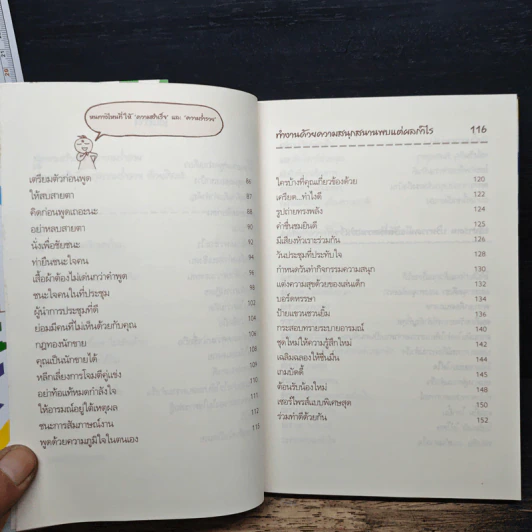 หนทางใหม่ที่ให้ 'ความสำเร็จ' และ 'ความร่ำรวย'
เตรียมตัวก่อนพูด 86
ให้สบสายตา 87
คิดก่อนพูดเถอะนะ 88
อย่าหลบสายตา 90
นั่งเพื่อชัยชนะ 92
ท่ายืนชนะใจคน 94
เสื้อผ้าต้องไม่เด่นกว่าคำพูด 96
ชนะใจคนในที่ประชุม 98
ผู้นำการประชุมที่ดี 102
ย่อมมีคนที่ไม่เห็นด้วยกับคุณ 104
กฎทองนักขาย 106
คุณเป็นนักขายได้ 108
หลีกเลี่ยงการโจมตีคู่แข่ง 109
อย่าท้อแท้หมดกำลังใจ 110
ให้อารมณ์อยู่ใต้เหตุผล 111
ชนะการสัมภาษณ์งาน 112
พูดด้วยความภูมิใจในตนเอง 115
ทำงานด้วยความสนุกสนานพบแต่ผลกำไร 116
ใครบ้างที่คุณเกี่ยวข้องด้วย 120
เครียด...ทำไงดี 122
รูปถ่ายทรงพลัง 124
คำชื่นชมยินดี 125
มีเสียงหัวเราะร่วมกัน 126
วันประชุมที่ประทับใจ 128
กำหนดวันทำกิจกรรมความสนุก 130
แต่งความสุขด้วยของเล่นเด็ก 132
บอร์ดหรรษา 134
ป้ายแขวนชวนยิ้ม 136
กระสอบทรายระบายอารมณ์ 140
ชุดใหม่ให้ความรู้สึกใหม่ 142
เฉลิมฉลองให้ชื่นมื่น 144
เกมบัดดี้ 145
ต้อนรับน้องใหม่ 148
เซอร์ไพรส์แบบพิเศษสุด 150
ร่วมทำดีด้วยกัน 152